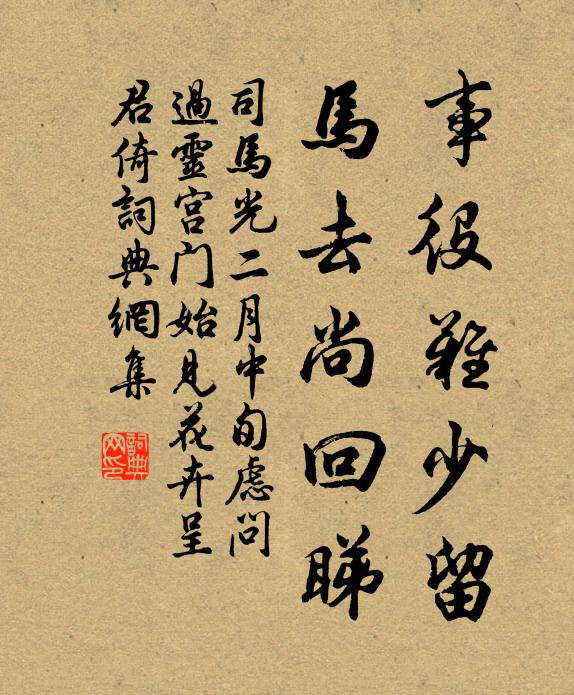 事役難少留
馬去尚回睇
司馬光二月中旬慮問
過靈宫门始見花卉呈
君倚詞典網集
詞典
网印